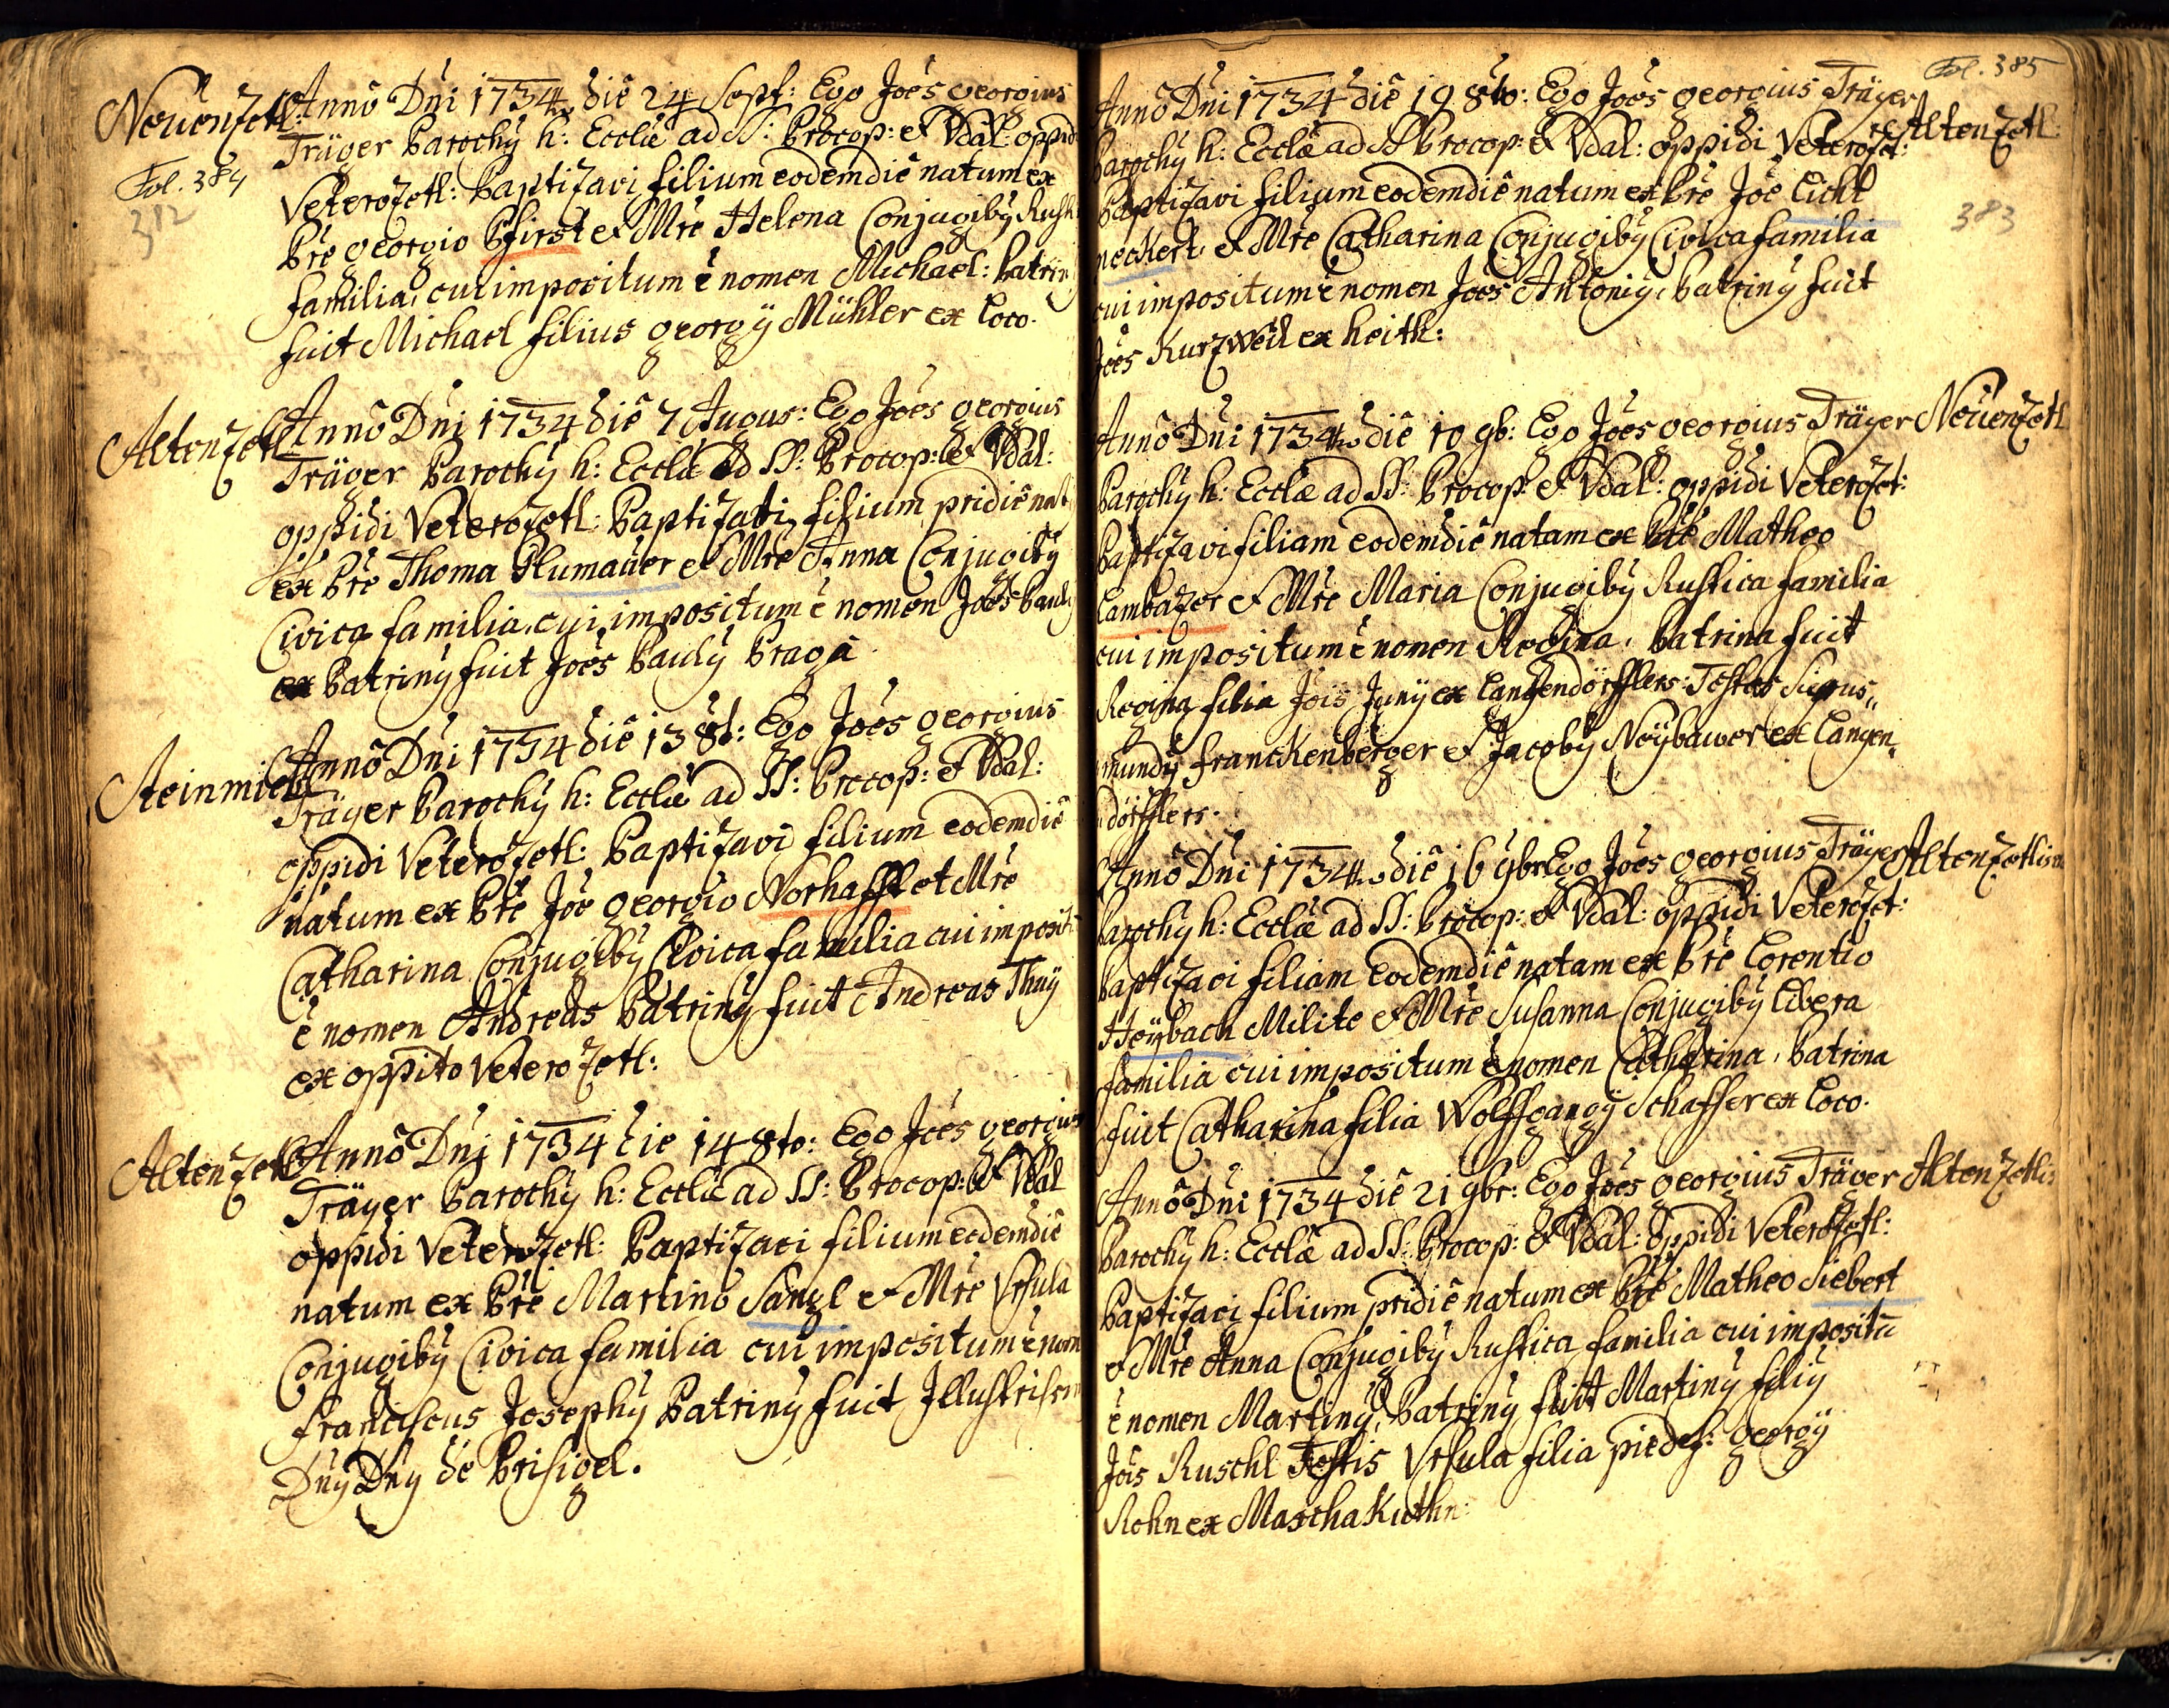 Neüenzetl:
Fol. 384
312
Annô Dni 1734 diê 24 Sept: Ego Joês georgius
Träger Parochÿ h: Ecclæ ad SS: Procop: et Vdal: oppidi
Veterozetl: Baptizavi filium eodemdiê natum ex
Pre georgio Pfirst et Mre Helena Conjugibÿ Rusti
familia, cui impositum ê nomen Michael: Patrin
fuit Michael filius georgÿ Mühler ex Loco.
Altenzetl:
Annô Dni 1734 diê 7 Augus: Ego Joês georgius
Träger Parochÿ h: Ecclæ ad SS: Procop: et Vdal:
oppidi Veterozetl: Baptizavi filium pridiê nat
ex Pre Thoma Plumaüer et Mre Anna Conjugibÿ
Civica familia, cui impositum ê nomen Joês Paulÿ
Patrinÿ fuit Joês Paulÿ Braga.
Steinmichl
Annô Dni 1734 diê 13 8b: Ego Joês georgius
Träger Parochÿ h: Ecclæ ad SS: Procop: et Vdal:
oppidi Veterozetl: Baptizavi filium eodemdiê
natum ex Pre Joe georgio Norhafft et Mre
Catharina Conjugibÿ Civica familia cui imposit
ê nomen Andreas Patrinÿ fuit Andreas Thuÿ
ex oppito Veterozetl:
Altenzetl
Annô Dni 1734 die 14 8to: Ego Joês georgius
Träger Parochÿ h: Ecclæ ad SS: Procop: et Vdal
oppidi Veterozetl: Baptizavi filium eodemdiê
natum ex Pre Martino Sangl et Mre Vrsula
Conjugibÿ Civica familia cui impositum ê nom
franciscus Josephÿ Patrinÿ fuit Illustrissim
Dnÿ Dnÿ de Prisigel.
Fol. 385
383
Annô Dni 1734 diê 19 8to: Ego Joês georgius Träger
Altenzetl:
Parochÿ h: Ecclæ ad SS Procop: et Vdal: oppidi Veterozet:
Baptizavi filium eodemdiê natum ex Pre Joê Licht
neckert et Mre Catharina Conjugibÿ Civica familia
cui impositum ê nomen Joes Antoniÿ, Patrinÿ fuit
Joes Kurzweil ex heith:
Annô Dni 1734 diê 10 9b: Ego Joes georgius Träger Neüenzetl
Parochÿ h: Ecclæ ad SS: Procop: et Vdal: oppidi Veterozet:
Baptizavi filiam eodemdiê natam ex Pre Matheo
Lambazer et Mre Maria Conjugibÿ Rustica familia
cui impositum ê nomen Regina, Patrina fuit
Regina filia Jois Junÿ ex Langendörfflers: Testes Sigus„
mundÿ franckenberger et Jacobÿ Neÿbawer ex Langen„
dörfflers.
Annô Dni 1734 diê 16 9br Ego Joes georgius Träger Altenzetlis
Parochÿ h: Ecclæ ad SS: Procop: et Vdal: oppidi Veterozet:
Baptizavi filiam Eodemdiê natam ex Pre Lorentio
Heÿbach Milite et Mre Susanna Conjugibÿ Libera
familia cui impositum ê nomen Catharina, Patrina
fuit Catharina filia Wolffgangÿ Schaffer ex Loco.
Annô Dni 1734 diê 21 9br: Ego Joes georgius Träger Altenzetlis
Parochÿ h: Ecclæ ad SS: Procop: et Vdal: oppidi Veterozetl:
Baptizavi filium pridiê natum ex Pre Matheo Siebert
et Mre Anna Conjugibÿ Rustica familia cui impositū
ê nomen Martinÿ, Patrinÿ fuit Martinÿ filiÿ
Jois Ruschl Testis Vrsula filia piedef: georgÿ
Rohn ex Maschakuthn: